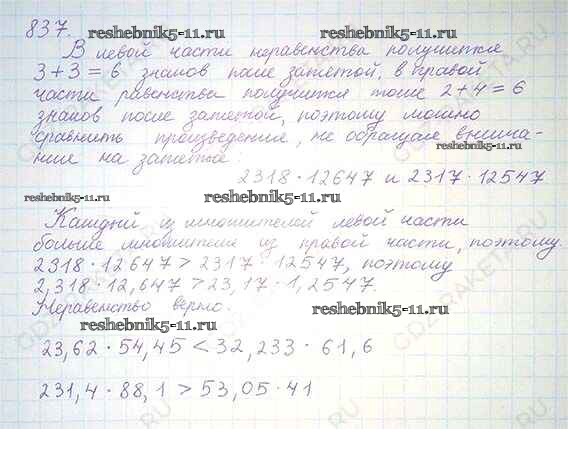 837.
reshebnik5-11.ru
reshebnik5-11.ru
В левой части неравенства получится
3+3=6 знаков после запятой, в правой
части равенства получится тоже 2+4=6
знаков после запятой, поэтому можно
сравнить произведения, не обращая внима-
ние на запятые:
2318 · 12647 и 2317 · 12547
reshebnik5-11.ru
reshebnik5-11.ru
Каждый из множителей левой части
больше множителя из правой части, поэтому.
2318 · 12647 > 2317 · 12547, поэтому
2,318 · 12,647 > 23,17 · 1,2547.
Неравенство верно.
reshebnik5-11.ru
reshebnik5-11.ru
23,62 · 54,45 < 32,233 · 61,6
231,4 · 88,1 > 53,05 · 41
GDZ-RAKETA.RU